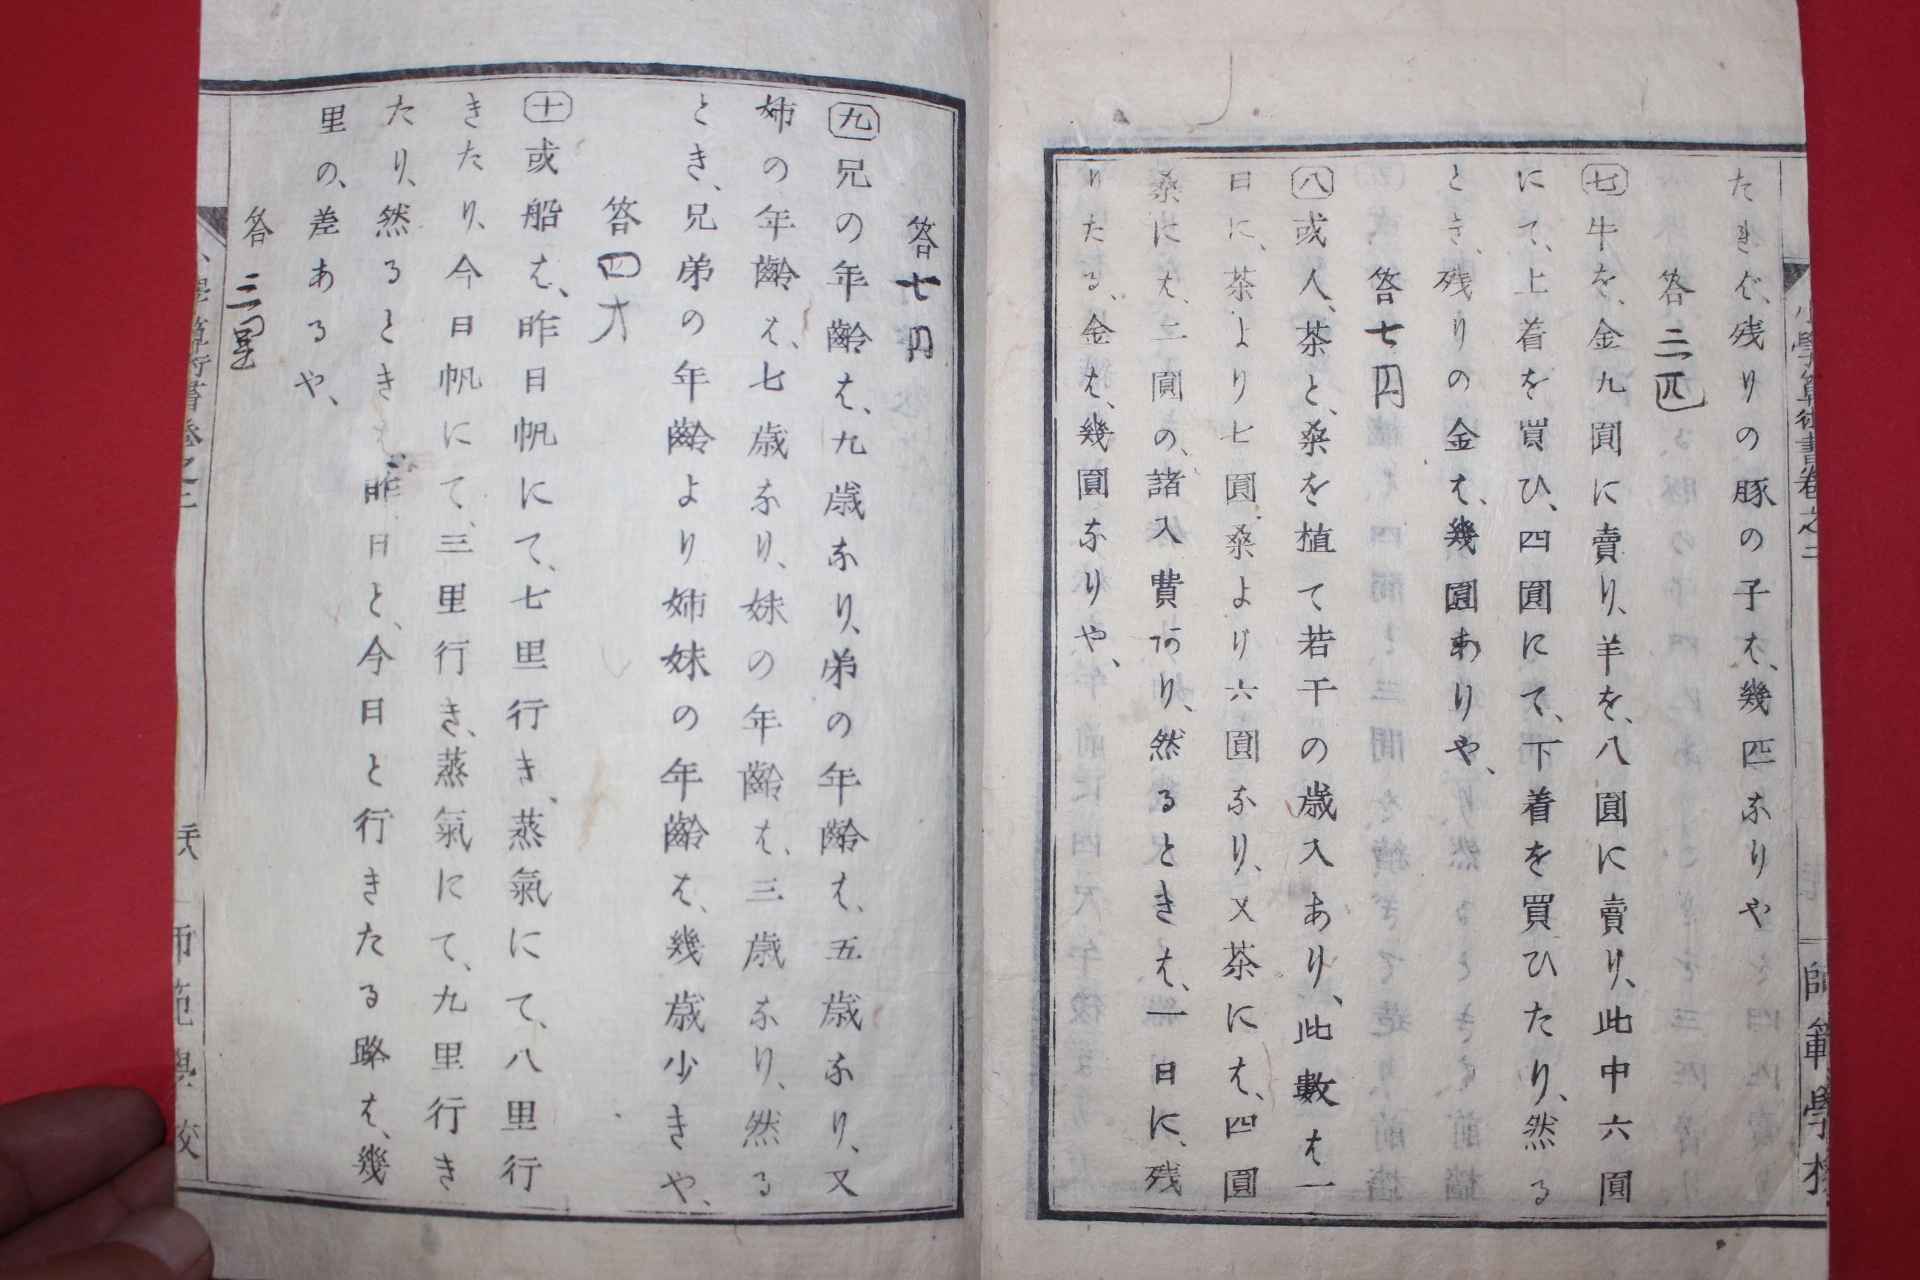 たきバ、残りの豚の子ハ、幾匹なりや
答三匹
七 牛を、金九圓に賣り、羊を、八圓に賣り、此中六圓
にて、上着を買ひ、四圓にて、下着を買ひたり、然る
とき、残りの金ハ、幾圓ありや、
答七円
八 或人、茶と、桑を植て若干の歳入あり、此數ハ一
日に、茶より七圓、桑より六圓なり、又茶にハ、四圓
桑にハ、二圓の、諸入費アリ、然るときハ、一日に、残
りたる、金ハ、幾圓なりや、
小學算術書卷之二
師範學校
答七円
九 兄の年齡ハ、九歳なり、弟の年齡ハ、五歳なり、又
姉の年齡ハ、七歳なり、妹の年齡ハ、三歳なり、然る
とき、兄弟の年齡より姉妹の年齡ハ、幾歳少きや、
答四才
十 或船ハ、昨日帆にて、七里行き、蒸氣にて、八里行
きたり、今日帆にて、三里行き、蒸氣にて、九里行き
たり、然るときハ、昨日と、今日と行きたる路ハ、幾
里の、差あるや、
答三里
算術書卷之二
師範學校